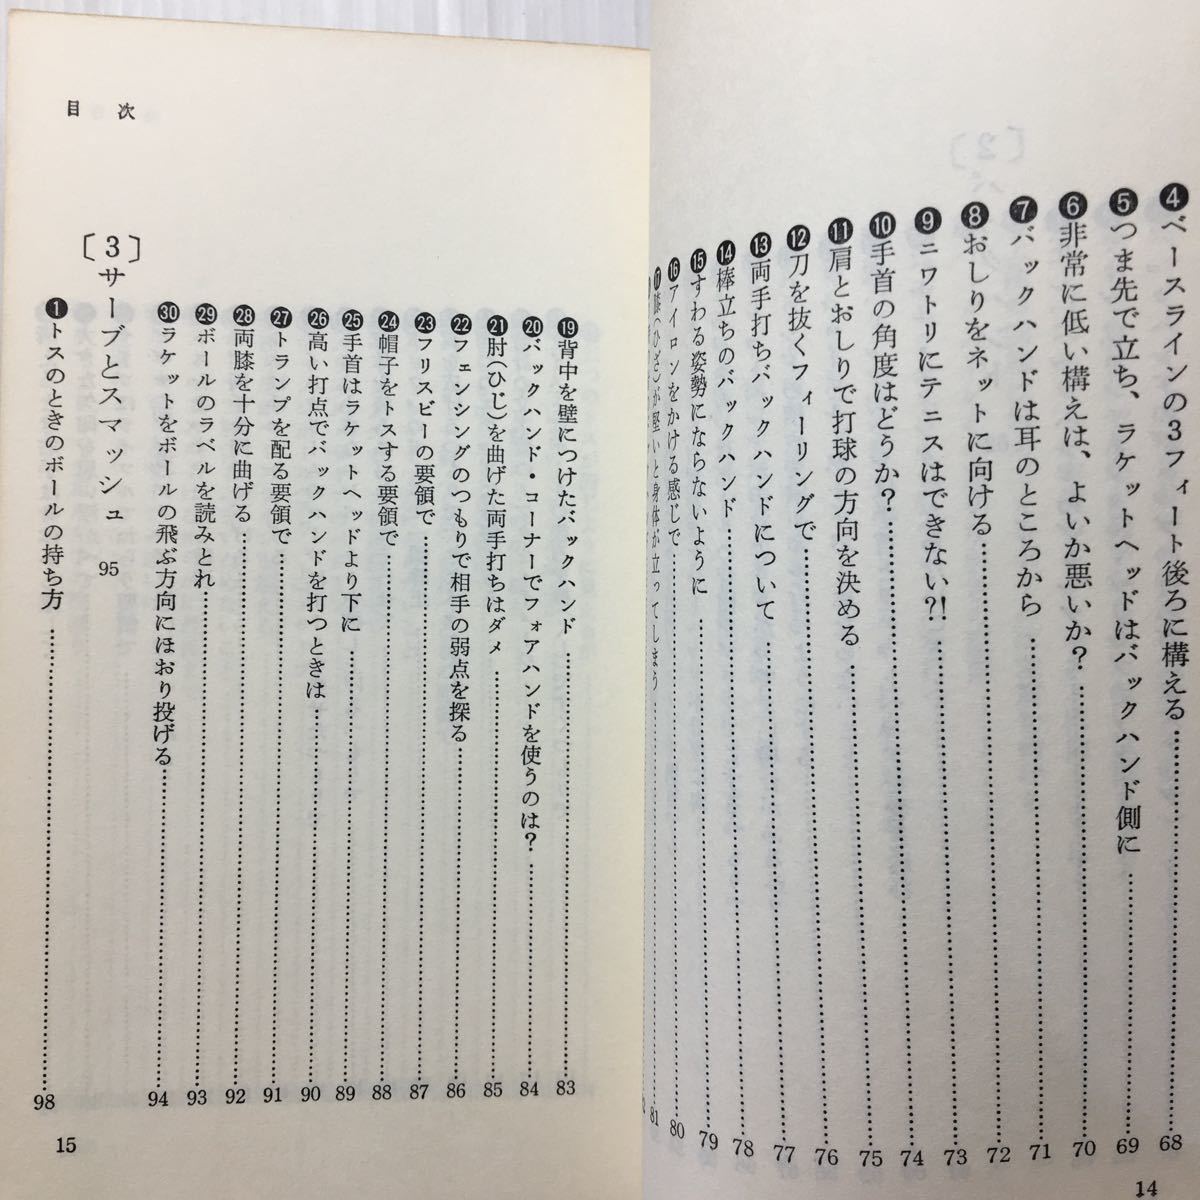 ❹ベースラインの3フィート後ろに構える……68
❺つま先で立ち、ラケットヘッドはバックハンド側に……69
❻非常に低い構えは、よいか悪いか?……70
❼バックハンドは耳のところから……71
❽おしりをネットに向ける……72
❾ニワトリにテニスはできない?!……73
❿手首の角度はどうか?……74
⓫肩とおしりで打球の方向を決める……75
⓬刀を抜くフィーリングで……76
⓭両手打ちバックハンドについて……77
⓮棒立ちのバックハンド……78
⓯すわる姿勢にならないように……79
⓰アイロンをかける感じで……80
⓱膝(ひざ)が堅いと身体が立ってしまう……81
14
目次
⓳背中を壁につけたバックハンド……83
⓴バックハンド・コーナーでフォアハンドを使うのは?……84
㉑肘(ひじ)を曲げた両手打ちはダメ……85
㉒フェンシングのつもりで相手の弱点を探る……86
㉓フリスビーの要領で……87
㉔帽子をトスする要領で……88
㉕手首はラケットヘッドより下に……89
㉖高い打点でバックハンドを打つときは……90
㉗トランプを配る要領で……91
㉘両膝を十分に曲げる……92
㉙ボールのラベルを読みとれ……93
㉚ラケットをボールの飛ぶ方向にほおり投げる……94
〔3〕サーブとスマッシュ 95
❶トスのときのボールの持ち方……98
15